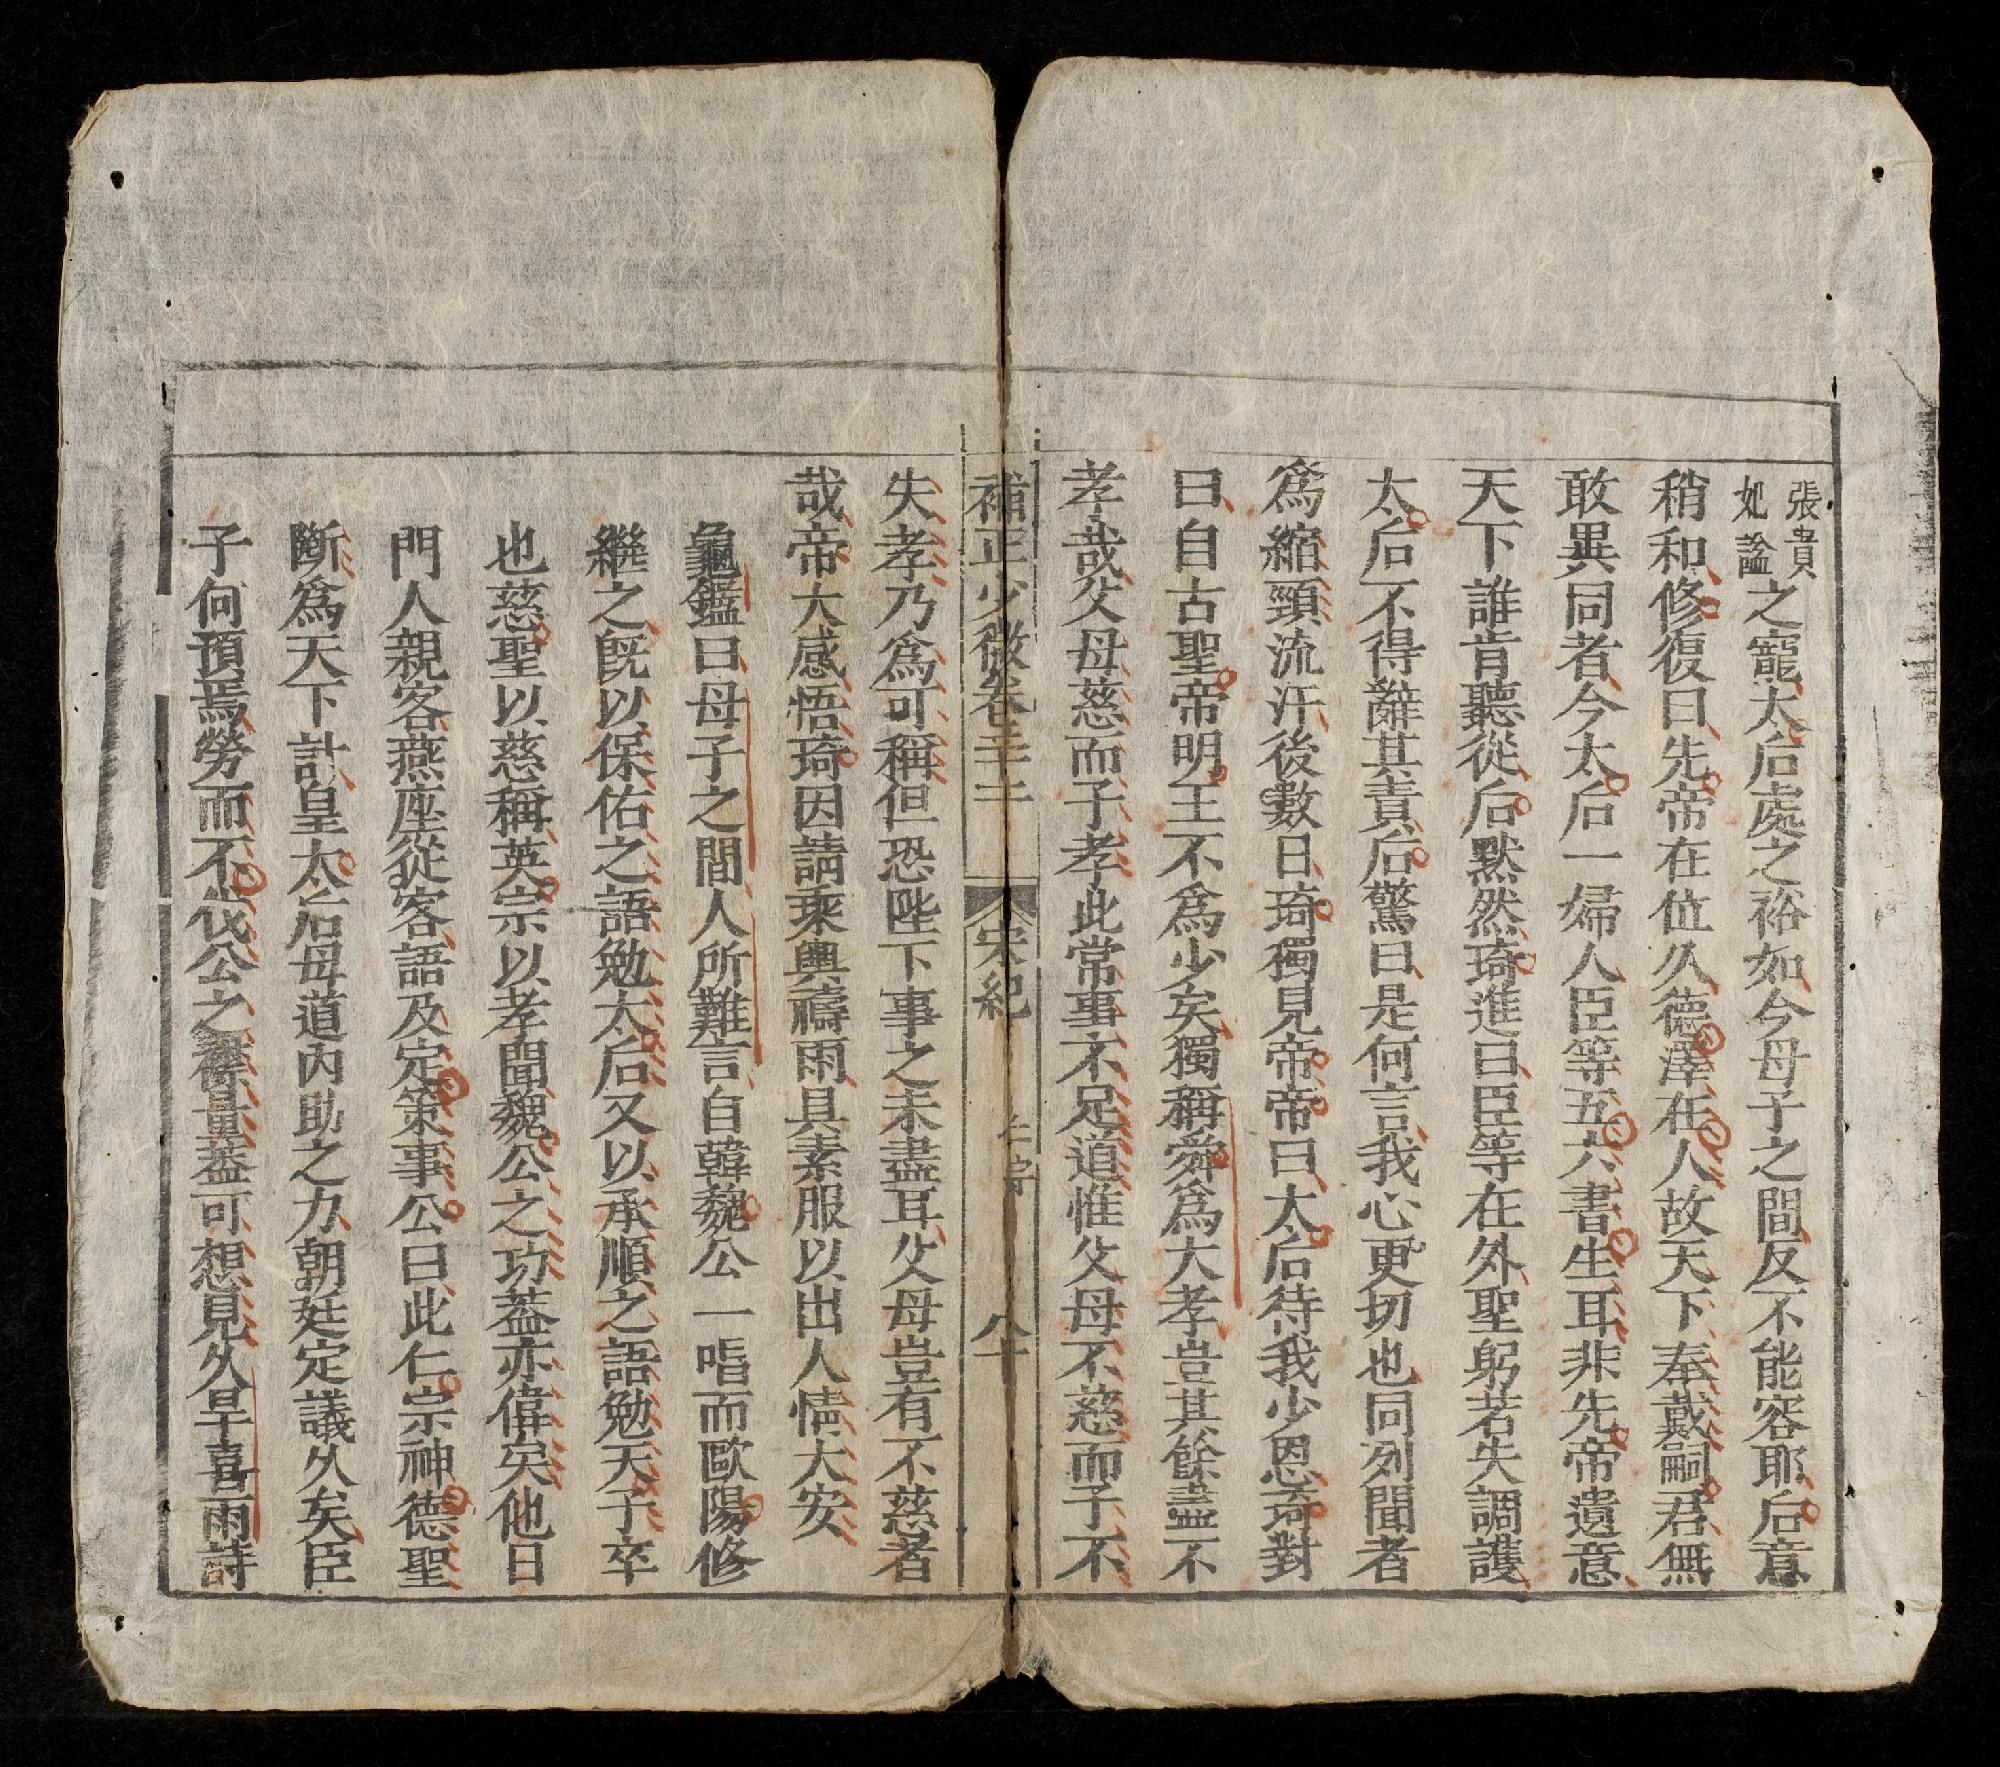 張貴
妃謚
之寵太后處之裕如今母子之間反不能容耶后意
稍和修復曰先帝在位久德澤在人故天下奉戴嗣君無
敢異同者今太后一婦人臣等五六書生耳非先帝遺意
天下誰肯聽從后黙然琦進曰臣等在外聖躬若失調護
太后不得辭其責后驚曰是何言我心更切也同列聞者
爲縮頸流汗後數日琦獨見帝帝曰太后待我少恩琦對
曰自古聖帝明王不爲少矣獨稱舜爲大孝豈其餘盡不
孝哉父母慈而子孝此常事不足道惟父母不慈而子不
補正少微卷三二
宋紀
仁宗
八十
失孝乃爲可稱但恐陛下事之未盡耳父母豈有不慈者
哉帝大感悟琦因請乘輿禱雨具素服以出人情大安
龜鑑曰母子之間人所難言自韓魏公一唱而歐陽修
繼之既以保佑之語勉太后又以承順之語勉天子卒
也慈聖以慈稱英宗以孝聞魏公之功葢亦偉矣他日
門人親客燕座從容語及定策事公曰此仁宗神德聖
斷爲天下計皇太后母道內助之力朝廷定議久矣臣
子何預焉勞而不伐公之襟量葢可想見久旱喜雨詩